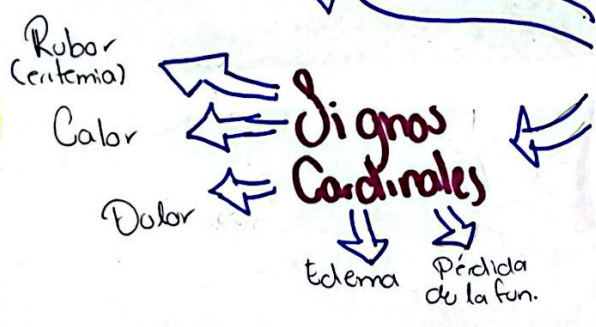 Rubor
(eritemia)
Calor
Dolor
Signos
Cardinales
Edema
Pérdida
de la fun.